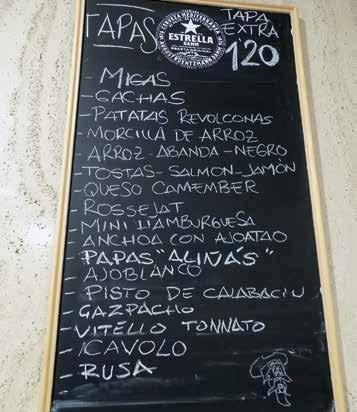 TAPAS
CERVEZA MEDITERRÁNEA
ESTRELLA
DAMM
TAPA
EXTRA
1'20
- MIGAS
- GACHAS
- PATATAS REVOLCONAS
- MORCILLA DE ARROZ
ARROZ-ABANDA-NEGRO
- TOSTAS-SALMON-JAMÒN
- QUESO CAMEMBER
- ROSSEJAT
- MINI HAMBURGUESA
- ANCHOA CON AJOATAO
- PAPAS "ALIÑÁS"
AJOBLANCO
- PISTO DE CALABACIN
- GAZPACHO
- VITELLO TONNATO
- ICAVOLO
- RUSA